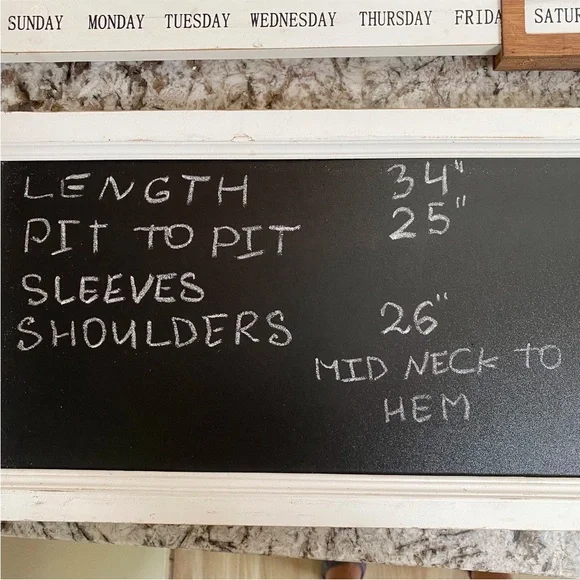 SUNDAY MONDAY TUESDAY WEDNESDAY THURSDAY FRIDA SATUR
LENGTH 34"
PIT TO PIT 25"
SLEEVES
SHOULDERS 26"
MID NECK TO
HEM